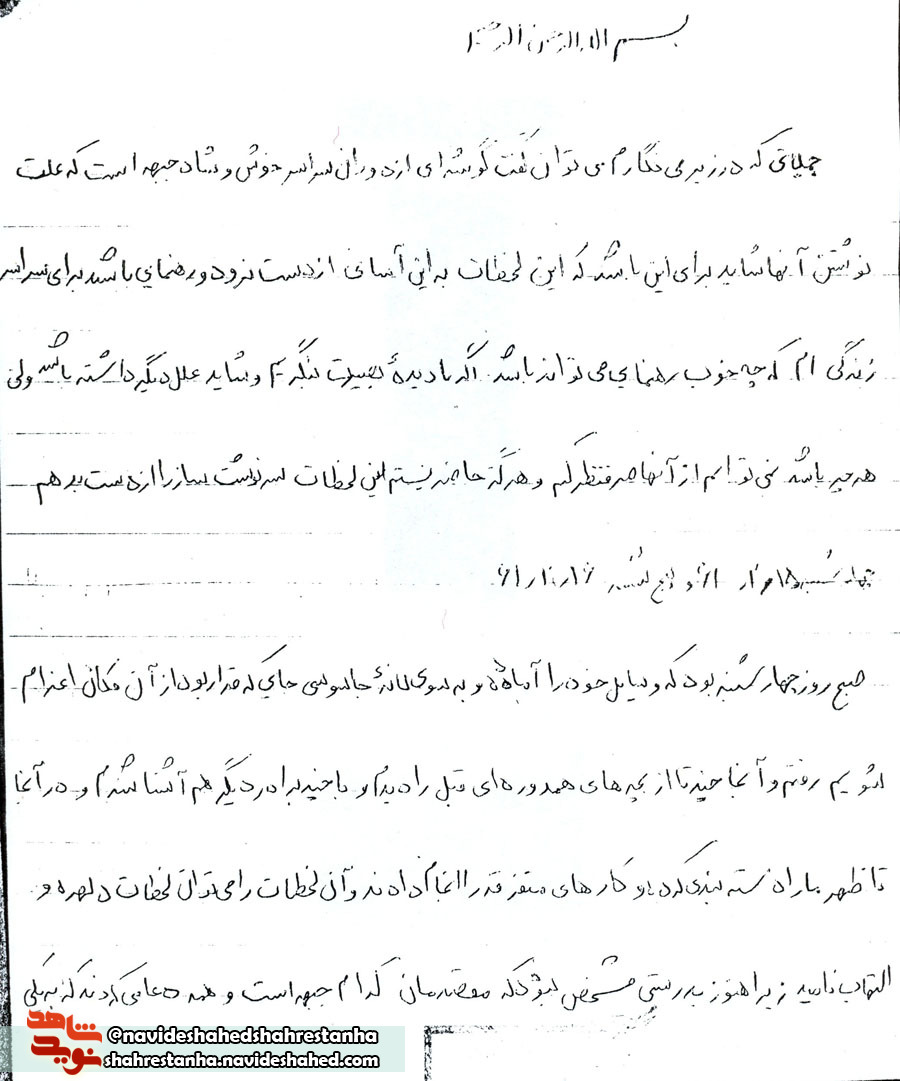 بسم الله الرحمن الرحیم
جملاتی که در زیر می نگارم می توان گفت گوشه ای از دوران سراسر خوش و شاد جبهه است که علت
نوشتن آنها شاید برای این باشد که این لحظات به این آسانی از دست نرود و رهنمایی باشد برای سراسر
زندگی ام که چه خوب رهنمایی می تواند باشد اگر با دیدهٔ بصیرت بنگریم و شاید علل دیگر داشته باشد ولی
هر چه باشد نمی توانم از آنها صرفنظر کنم و هرگز حاضر نیستم این لحظات سرنوشت ساز را از دست بدهم
چهارشنبه و پنج شنبه
صبح روز چهارشنبه بود که وسایل خود را آماده و به سوی لانهٔ جاسوسی جایی که قرار بود از آن مکان اعزام
شویم رفتم و آنجا چند تا از بچه های همدوره ای قبل را دیدم و با چند برادر دیگر هم آشنا شدم و در آنجا
تا ظهر ما را دسته بندی کرده و کارهای متفرقه را انجام دادند و آن لحظات را می توان لحظات دلهره و
التهاب نامید زیرا هنوز بدرستی مشخص نبود که مقصدمان کدام جبهه است و همه دعا می کردند که به یکی
شاهد
نوید
@navideshahedshahrestanha
shahrestanha.navideshahed.com